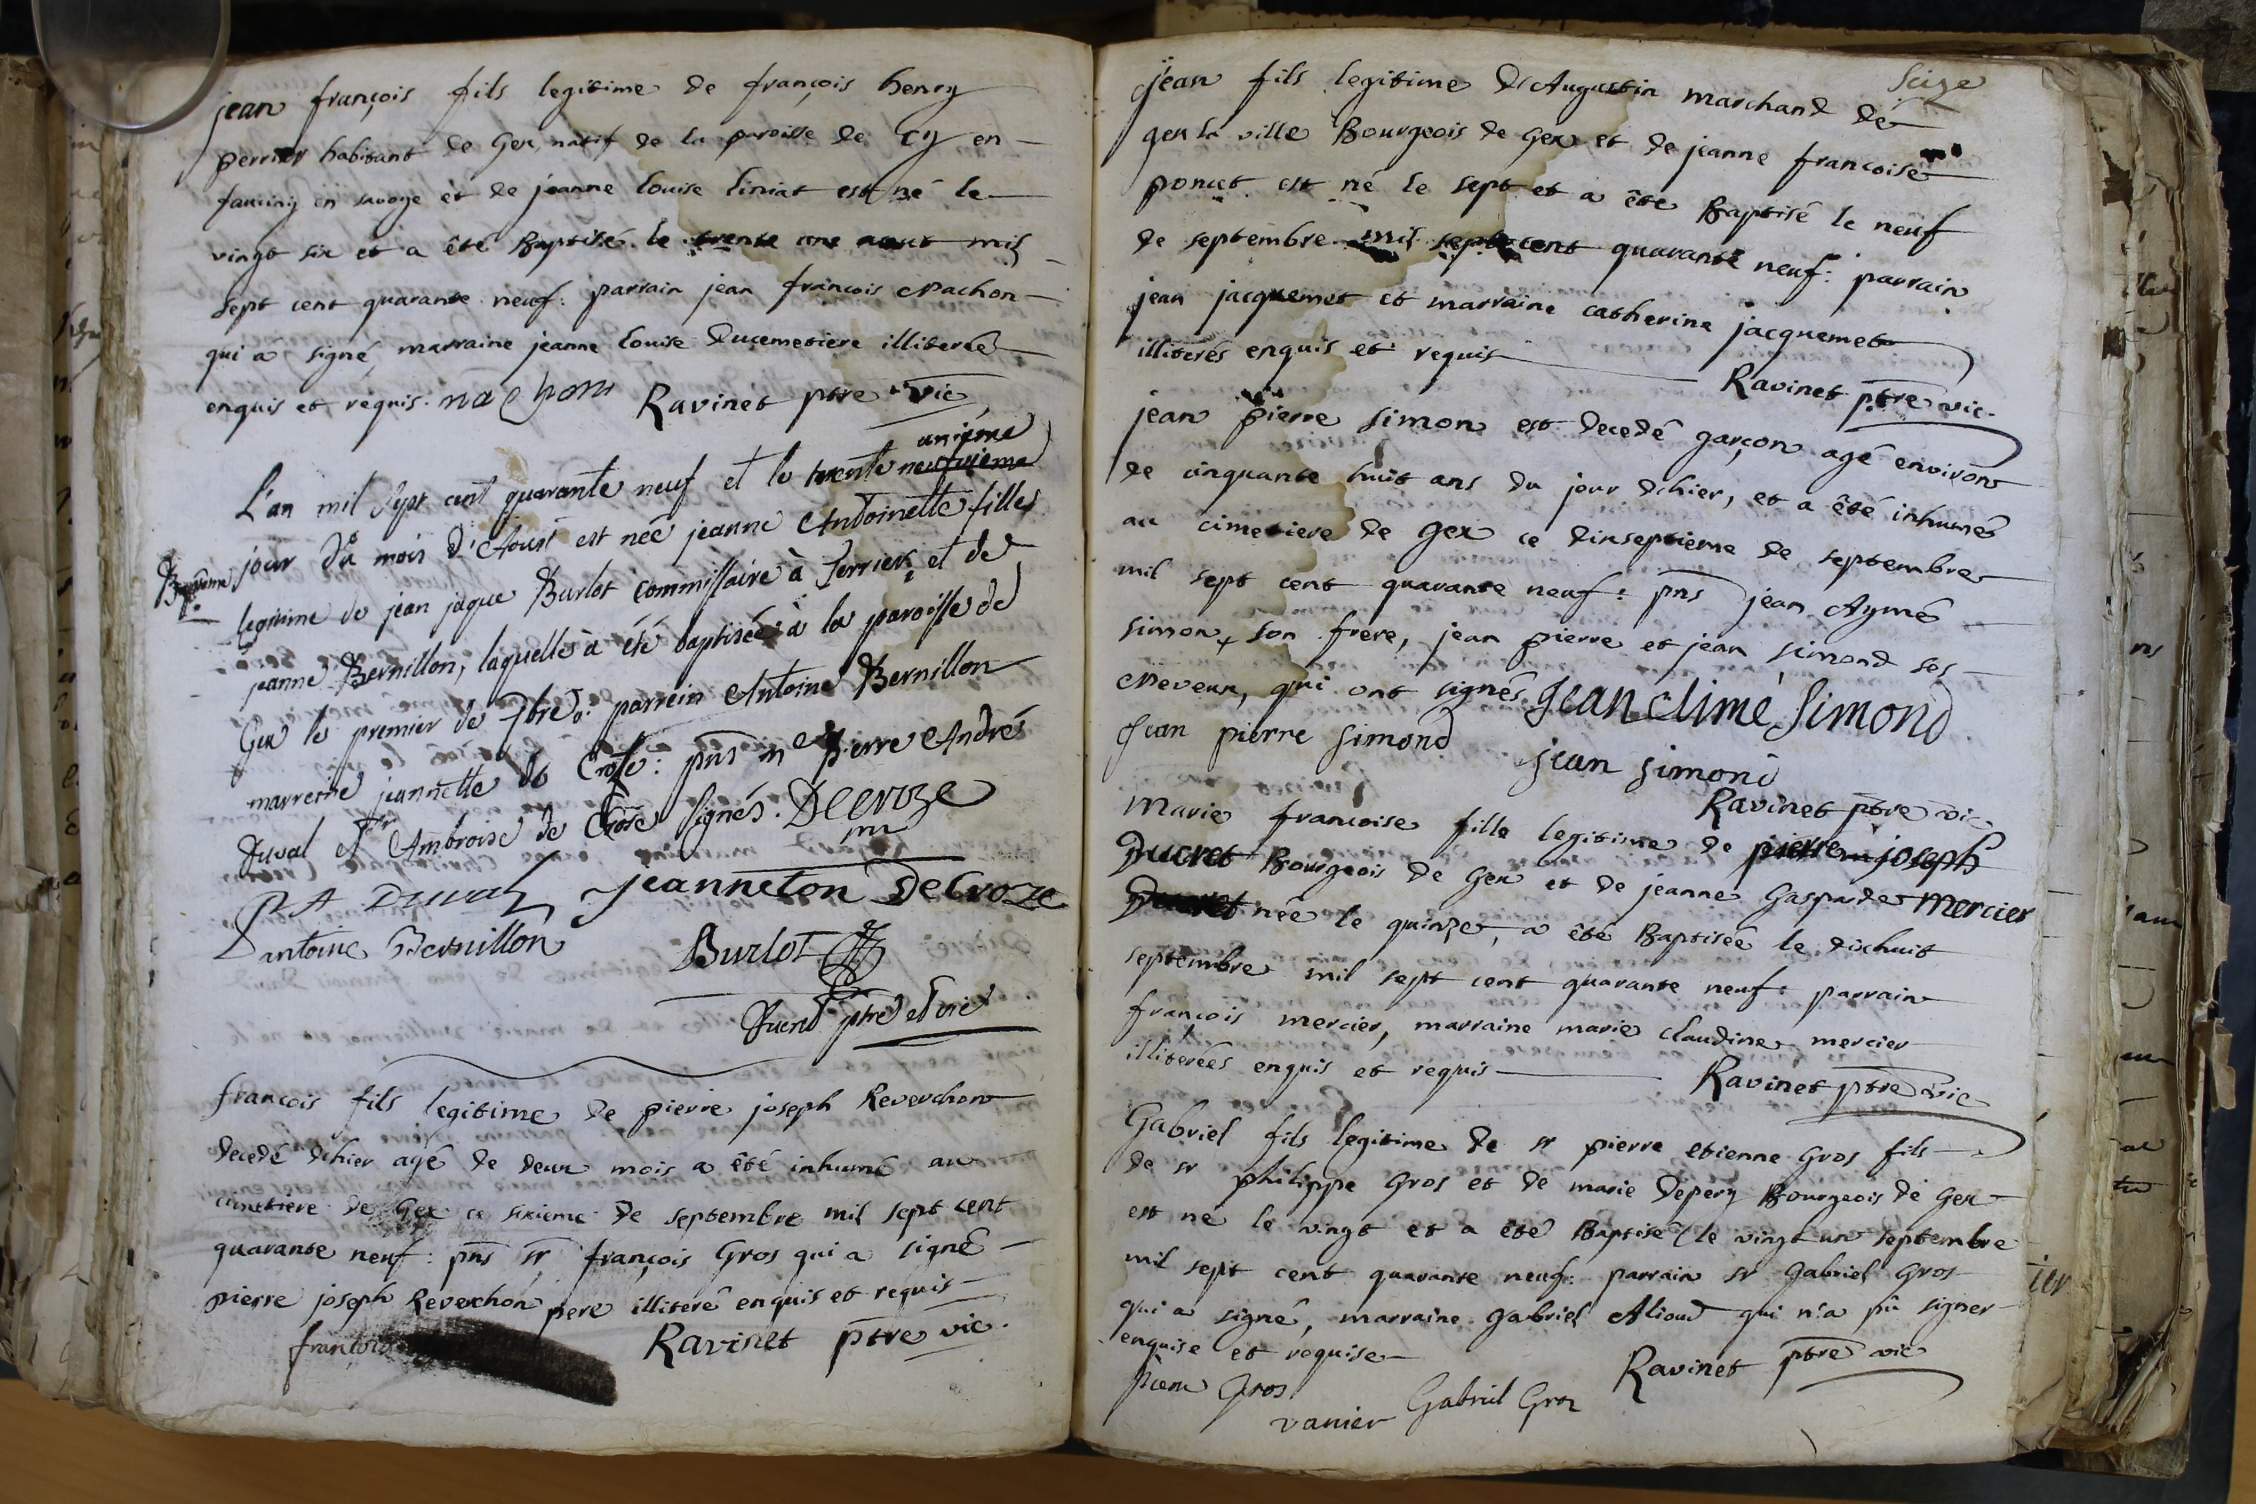 jean françois fils legitime de françois henry
perrier habitant de Gex, natif de la paroisse de Cy en
faucigny en savoye et de jeanne louise liniat est né le
vingt six et a été Baptisé le trente une aout mil
sept cent quarante neuf: parrain jean françois Nachon
qui a signé, marraine jeanne louise ducemetiere illiterée
enquis et requis. nachon Ravinet ptre vic
unieme
L'an mil sept cent quarante neuf et le trente neufvieme
Bapteme jour du mois d'Aoust est née jeanne Antoinette fille
legitime de jean jaque Burlot commissaire à Terrier, et de
jeanne Bernillon, laquelle à été baptisée à la paroisse de
Gex le premier de 7bre: parrein Antoine Bernillon
marreine jeannette de Crose: pns me pierre André
Duval et Ambroise de Crose signés. DeCroze
PA Duval jeanneton DeCroze
antoine Bernillon Burlot
Ducret ptre et vic
francois fils legitime de pierre joseph Reverchon
decedé d'hier agé de deux mois a été inhumé au
cimetiere de Gex ce sixieme de septembre mil sept cent
quarante neuf: pns sr françois Gros qui a signé
pierre joseph Reverchon pere illiteré enquis et requis
françois Ravinet ptre vic.
Seize
jean fils legitime d'Augustin marchand de
gex la ville Bourgeois de Gex et de jeanne francoise
poncet est né le sept et a été Baptisé le neuf
de septembre mil sept cent quarante neuf: parrain
jean jacquemet et marraine catherine jacquemet
illiterés enquis et requis Ravinet ptre vic.
jean pierre simon est decedé garçon agé environ
de cinquante huit ans du jour d'hier, et a été inhumé
au cimetiere de Gex ce dixseptieme de septembre
mil sept cent quarante neuf: pns jean Aymé
simon, son frere, jean pierre et jean simond ses
Neveux, qui ont signés. Jean Aimé Simond
Jean pierre Simond jean simond
Ravinet ptre vic
Marie francoise fille legitime de pierre joseph
Ducret Bourgeois de Gex et de jeanne Gasparde Mercier
Ducret née le quinze, a été Baptisée le dixhuit
septembre mil sept cent quarante neuf: parrain
françois mercier, marraine marie claudine mercier
illiterées enquis et requis Ravinet ptre vic
Gabriel fils legitime de sr pierre etienne Gros fils
de sr philippe Gros et de marie Depery Bourgeois de Gex
est né le vingt et a été Baptisé le vingt un septembre
mil sept cent quarante neuf: parrain sr Gabriel Gros
qui a signé, marraine Gabriel Alioud qui n'a pû signer
enquise et requise Ravinet ptre vic
Gros
vanier Gabriel Gros